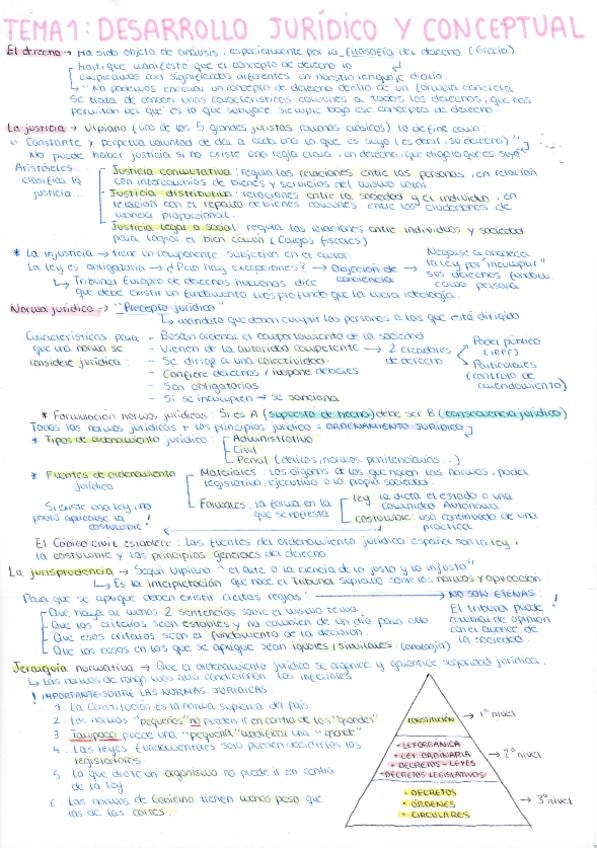 TEMA 1: DESARROLLO JURÍDICO Y CONCEPTUAL
El derecho → Ha sido objeto de análisis, especialmente por la filosofía del derecho (Grecia)
Hart: que manifesté que el concepto de derecho lo
empleamos con significados diferentes en nuestro lenguaje diario.
"No podemos encerrar un concepto de derecho dentro de un fórmula concreta
Se trata de conocer unas características comunes a todos los derechos, que nos
permitan ver qué es lo que subyace siempre bajo ese concepto de derecho.
La justicia → Ulpiano (uno de los 5 grandes juristas romanos clásicos) lo define como:
"Constante y perpetua voluntad de dar a cada uno lo que es suyo (es decir, su derecho)"
No puede haber justicia si no existe una regla clara, un derecho, que diga lo que es suyo
Aristóteles
clasifica la
justicia...
Justicia conmutativa: regula las relaciones entre las personas, en relación
con intercambios de bienes y servicios del mismo valor.
Justicia distributiva: relaciones entre la sociedad y el individuo, en
relación con el reparto de bienes comunes entre los ciudadanos de
manera proporcional.
Justicia legal o social: regula las relaciones entre individuos y sociedad
para lograr el bien común (Cargos fiscales)
* La injusticia → tiene un componente subjetivo en el autor
La ley es obligatoria → ¿Pero hay excepciones? → Objeción de conciencia → Negarse a obedecer la ley por "incumplir" sus derechos fundam. como persona
↳ Tribunal Europeo de derechos humanos dice
que debe existir un fundamento mas profundo que la mera ideología.
Norma jurídica → "Precepto jurídico"
↳ mandato que deben cumplir las personas a las que está dirigido
Características para
que una norma se
considere jurídica:
- Buscan ordenar el comportamiento de la sociedad
- Vienen de la autoridad competente → 2 creadores de derecho
Poder público (IRPF)
Particulares (contrato de arrendamiento)
- Se dirige a una colectividad
- Confiere derechos / impone deberes
- Son obligatorias
- Si se incumplen → se sanciona
* Formulación normas jurídicas: Si es A (supuesto de hecho) debe ser B (consecuencia jurídica)
Todas las normas jurídicas + los principios jurídico = ORDENAMIENTO JURÍDICO
* Tipos de ordenamiento jurídico:
Administrativo
Civil
Penal (delitos, normas penitenciarias...)
* Fuentes de ordenamiento
jurídico
Materiales: Los órganos de los que nacen las normas, poder
legislativo, ejecutivo o la propia sociedad.
Formales: la forma en la
que se manifiesta
ley: la dicta el estado o una
comunidad Autónoma.
costumbre: uso continuado de una
práctica
Si existe una ley, no
podrá aplicarse la
costumbre!
El Código civil establece: Las fuentes del ordenamiento jurídico español son la ley,
la costumbre y los principios generales del derecho
La jurisprudencia → Según Ulpiano "el arte o la ciencia de lo justo y lo injusto"
↳ Es la interpretación que hace el Tribunal Supremo sobre las normas y aplicación
Para que se aplique deben existir ciertas reglas:
- Que haya al menos 2 sentencias sobre el mismo tema.
- Que los criterios sean estables y no cambien de un día para otro
- Que esos criterios sean el fundamento de la decisión.
- Que los casos en los que se aplique sean iguales / similares (analogía)
→ NO SON ETERNAS!
El tribunal puede
cambiar de opinión
con el avance de
la sociedad.
Jerarquía normativa → Que el ordenamiento jurídico se organice y garantice seguridad jurídica.
↳ Las normas de rango mas alto condicionan las inferiores
! IMPORTANTE SOBRE LAS NORMAS JURÍDICAS:
1. La Constitución es la norma suprema del país
2. Las normas "pequeñas" no pueden ir en contra de las "grandes"
3. Tampoco puede una "pequeña" modificar una "grande"
4. Las leyes fundamentales solo pueden decidirlas los
legisladores
5. Lo que dicte un organismo no puede ir en contra
de la ley
6. Las normas de Gobierno tienen menos peso que
las de las cortes.
CONSTITUCIÓN → 1º nivel
• LEY ORGÁNICA
• LEY ORDINARIA
• DECRETOS-LEYES
• DECRETOS LEGISLATIVOS
→ 2º nivel
• DECRETOS
• ÓRDENES
• CIRCULARES
→ 3º nivel